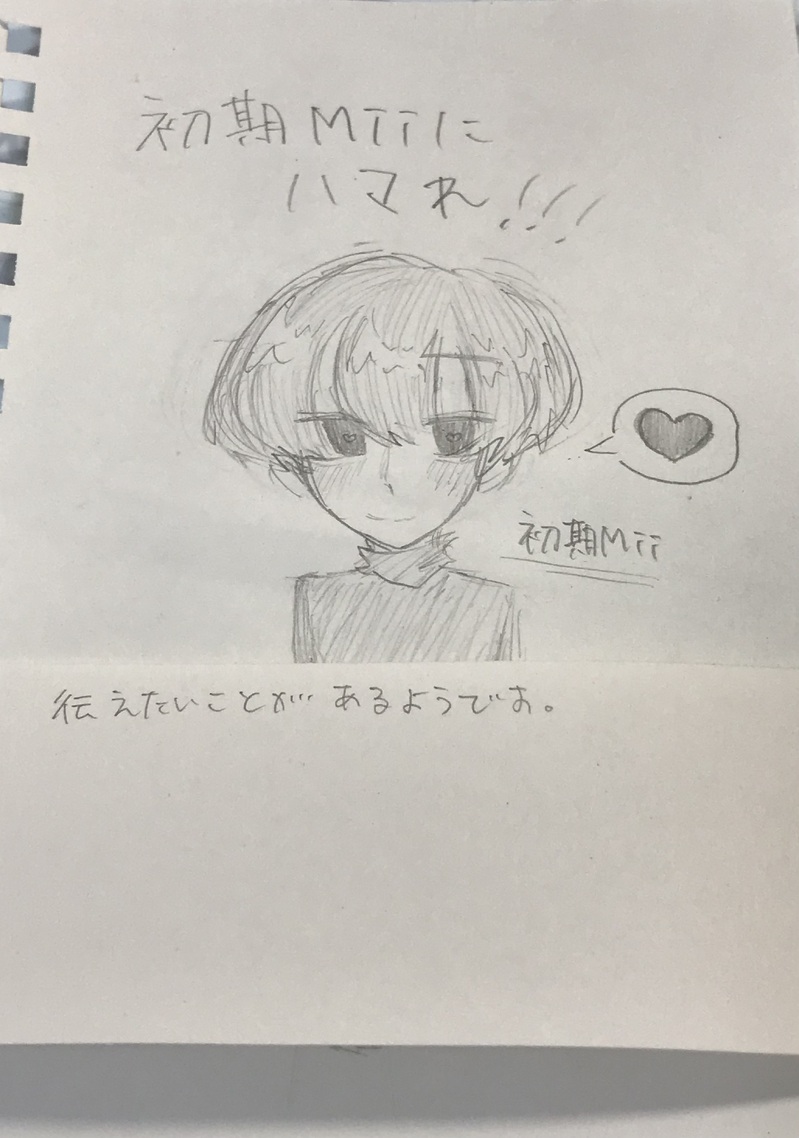 初期Miiに
ハマれ!!!
初期Mii
伝えたいことが あるようです。